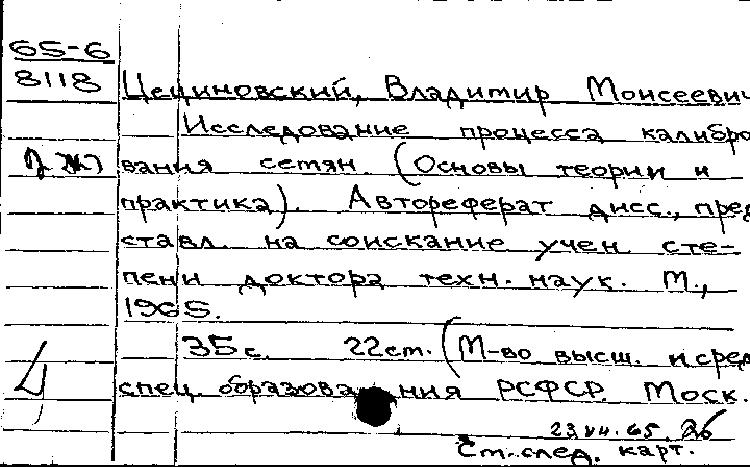 65-6
8118
Цециновский, Владимир Моисеевич
Исследование процесса калибро
вания семян. (Основы теории и
практика). Автореферат дисс., пред
ставл. на соискание учен сте-
пени доктора техн. наук. М.,
1965.
35 с. 22 см. (М-во высш. и сред
спец. образования РСФСР. Моск.
23.VII.65.
См. след. карт.